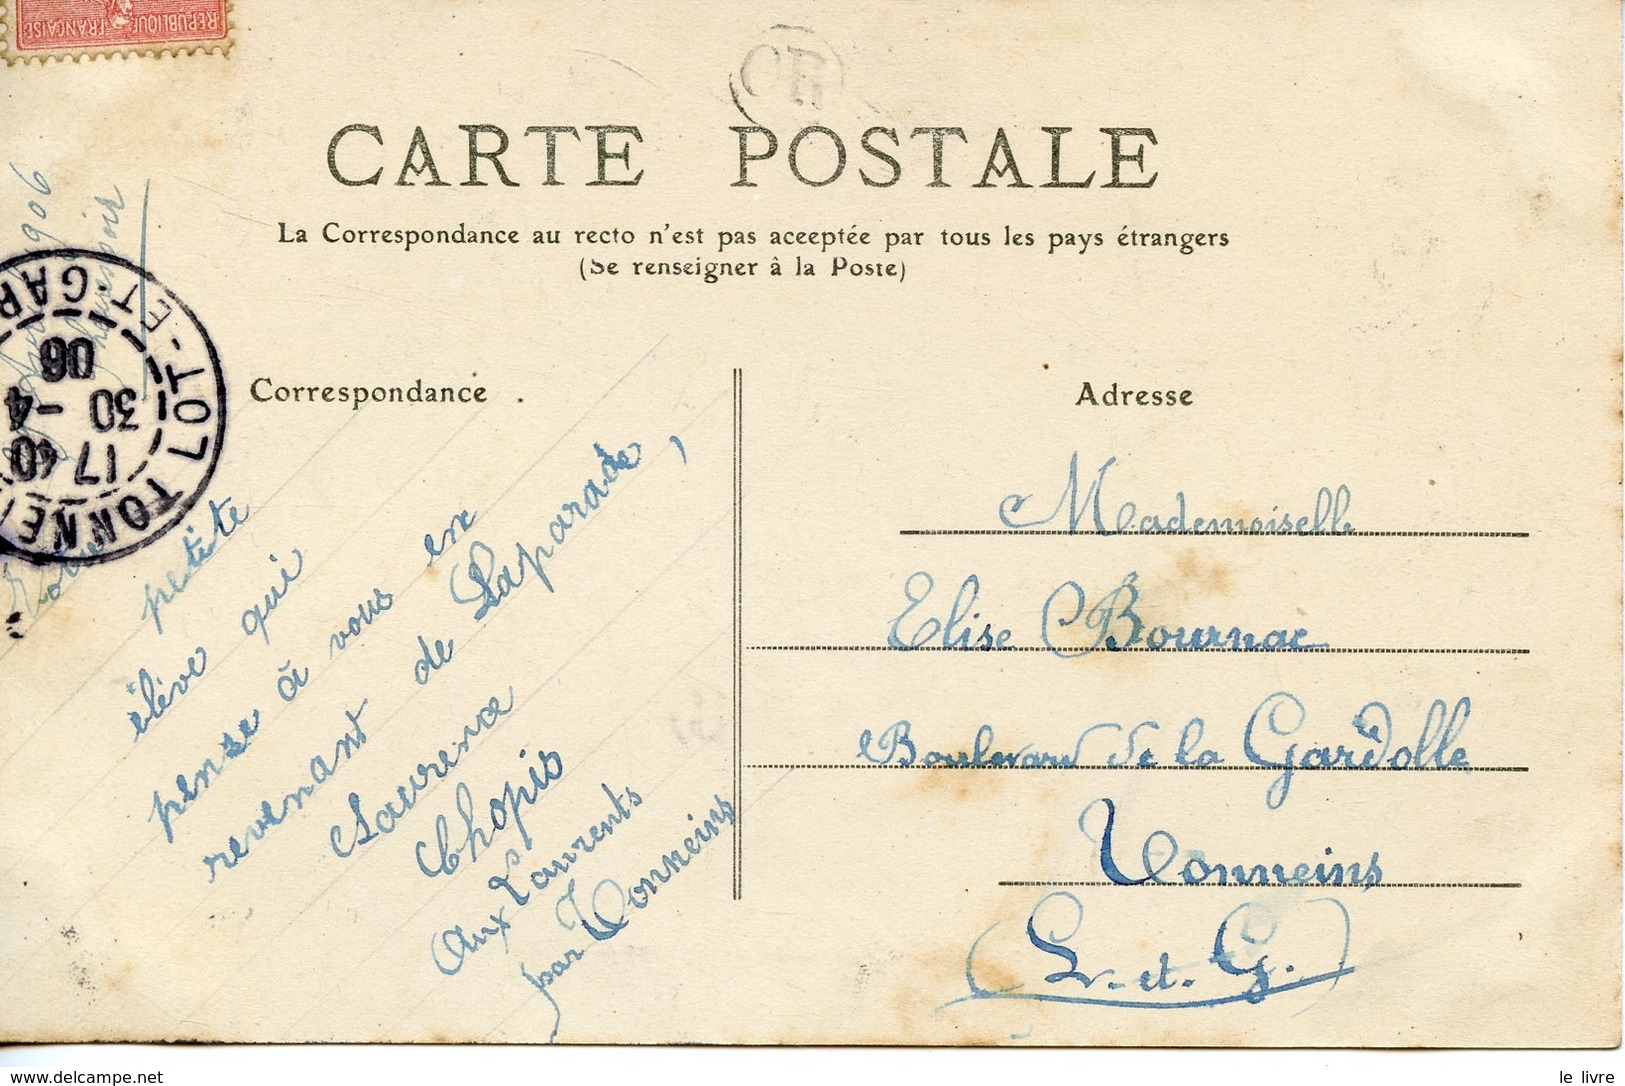 REPUBLIQUE FRANÇAISE
OR
CARTE POSTALE
La Correspondance au recto n'est pas acceptée par tous les pays étrangers
(Se renseigner à la Poste)
Correspondance
Adresse
TONNEINS LOT-ET-GAR
17 40
30 -4
06
petite
élève qui
pense à vous en
revenant de Laparade,
Laurence
Chopis
Aux Laurents
par Tonneins
Mademoiselle
Elise Bournac
Boulevard de la Gardolle
Tonneins
(L.-et-G.)
www.delcampe.net
le livre